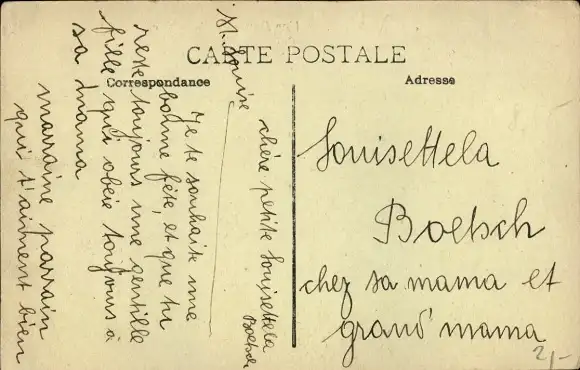 CARTE POSTALE
Correspondance
Adresse
St Louise
chère petite Louisettela
Boetsch
Je te souhaite une
bonne fête, et que tu
reste toujours une gentille
fille qui obéie toujours à
sa mama
marraine parrain
qui t'aiment bien
Louisettela
Boetsch
chez sa mama et
grand'mama
2,-